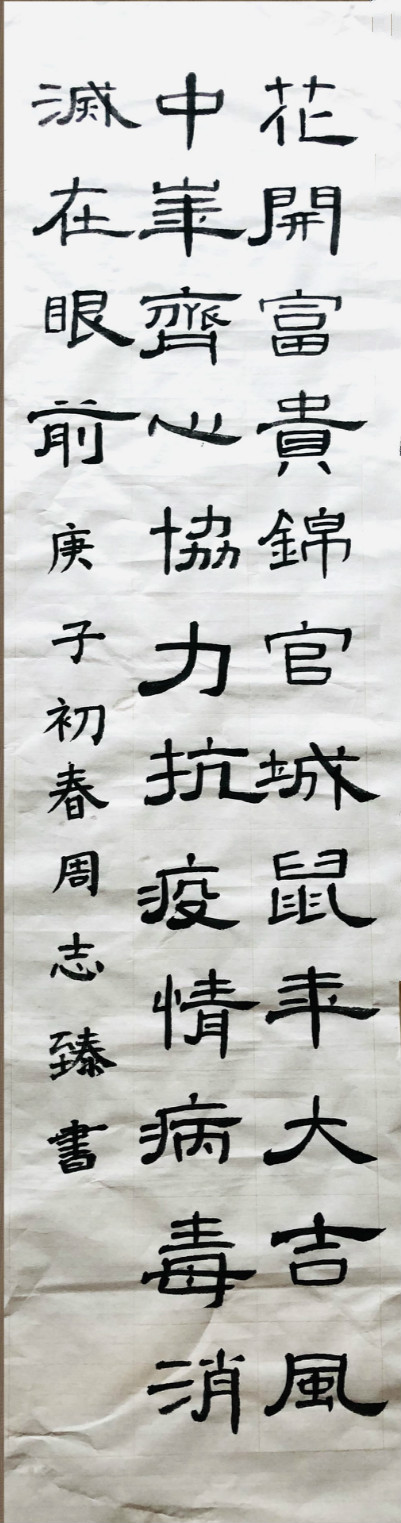 花開富貴錦官城鼠年大吉風
中華齊心協力抗疫情病毒消
滅在眼前庚子初春周志臻書